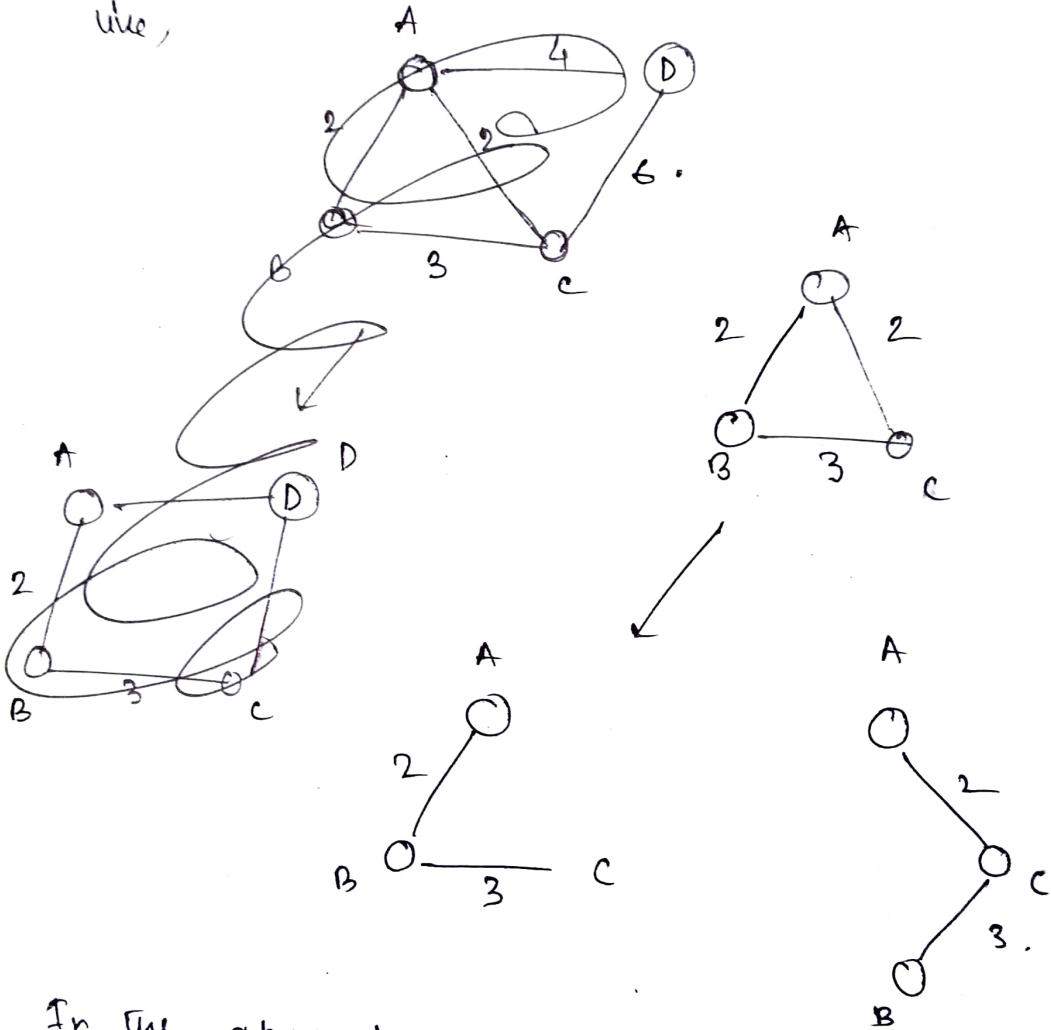 like,
A
4
D
2
2
6.
B
3
C
A
2
2
B
3
C
A
D
D
2
B
3
C
A
2
B
3
C
A
2
C
3.
B
In the